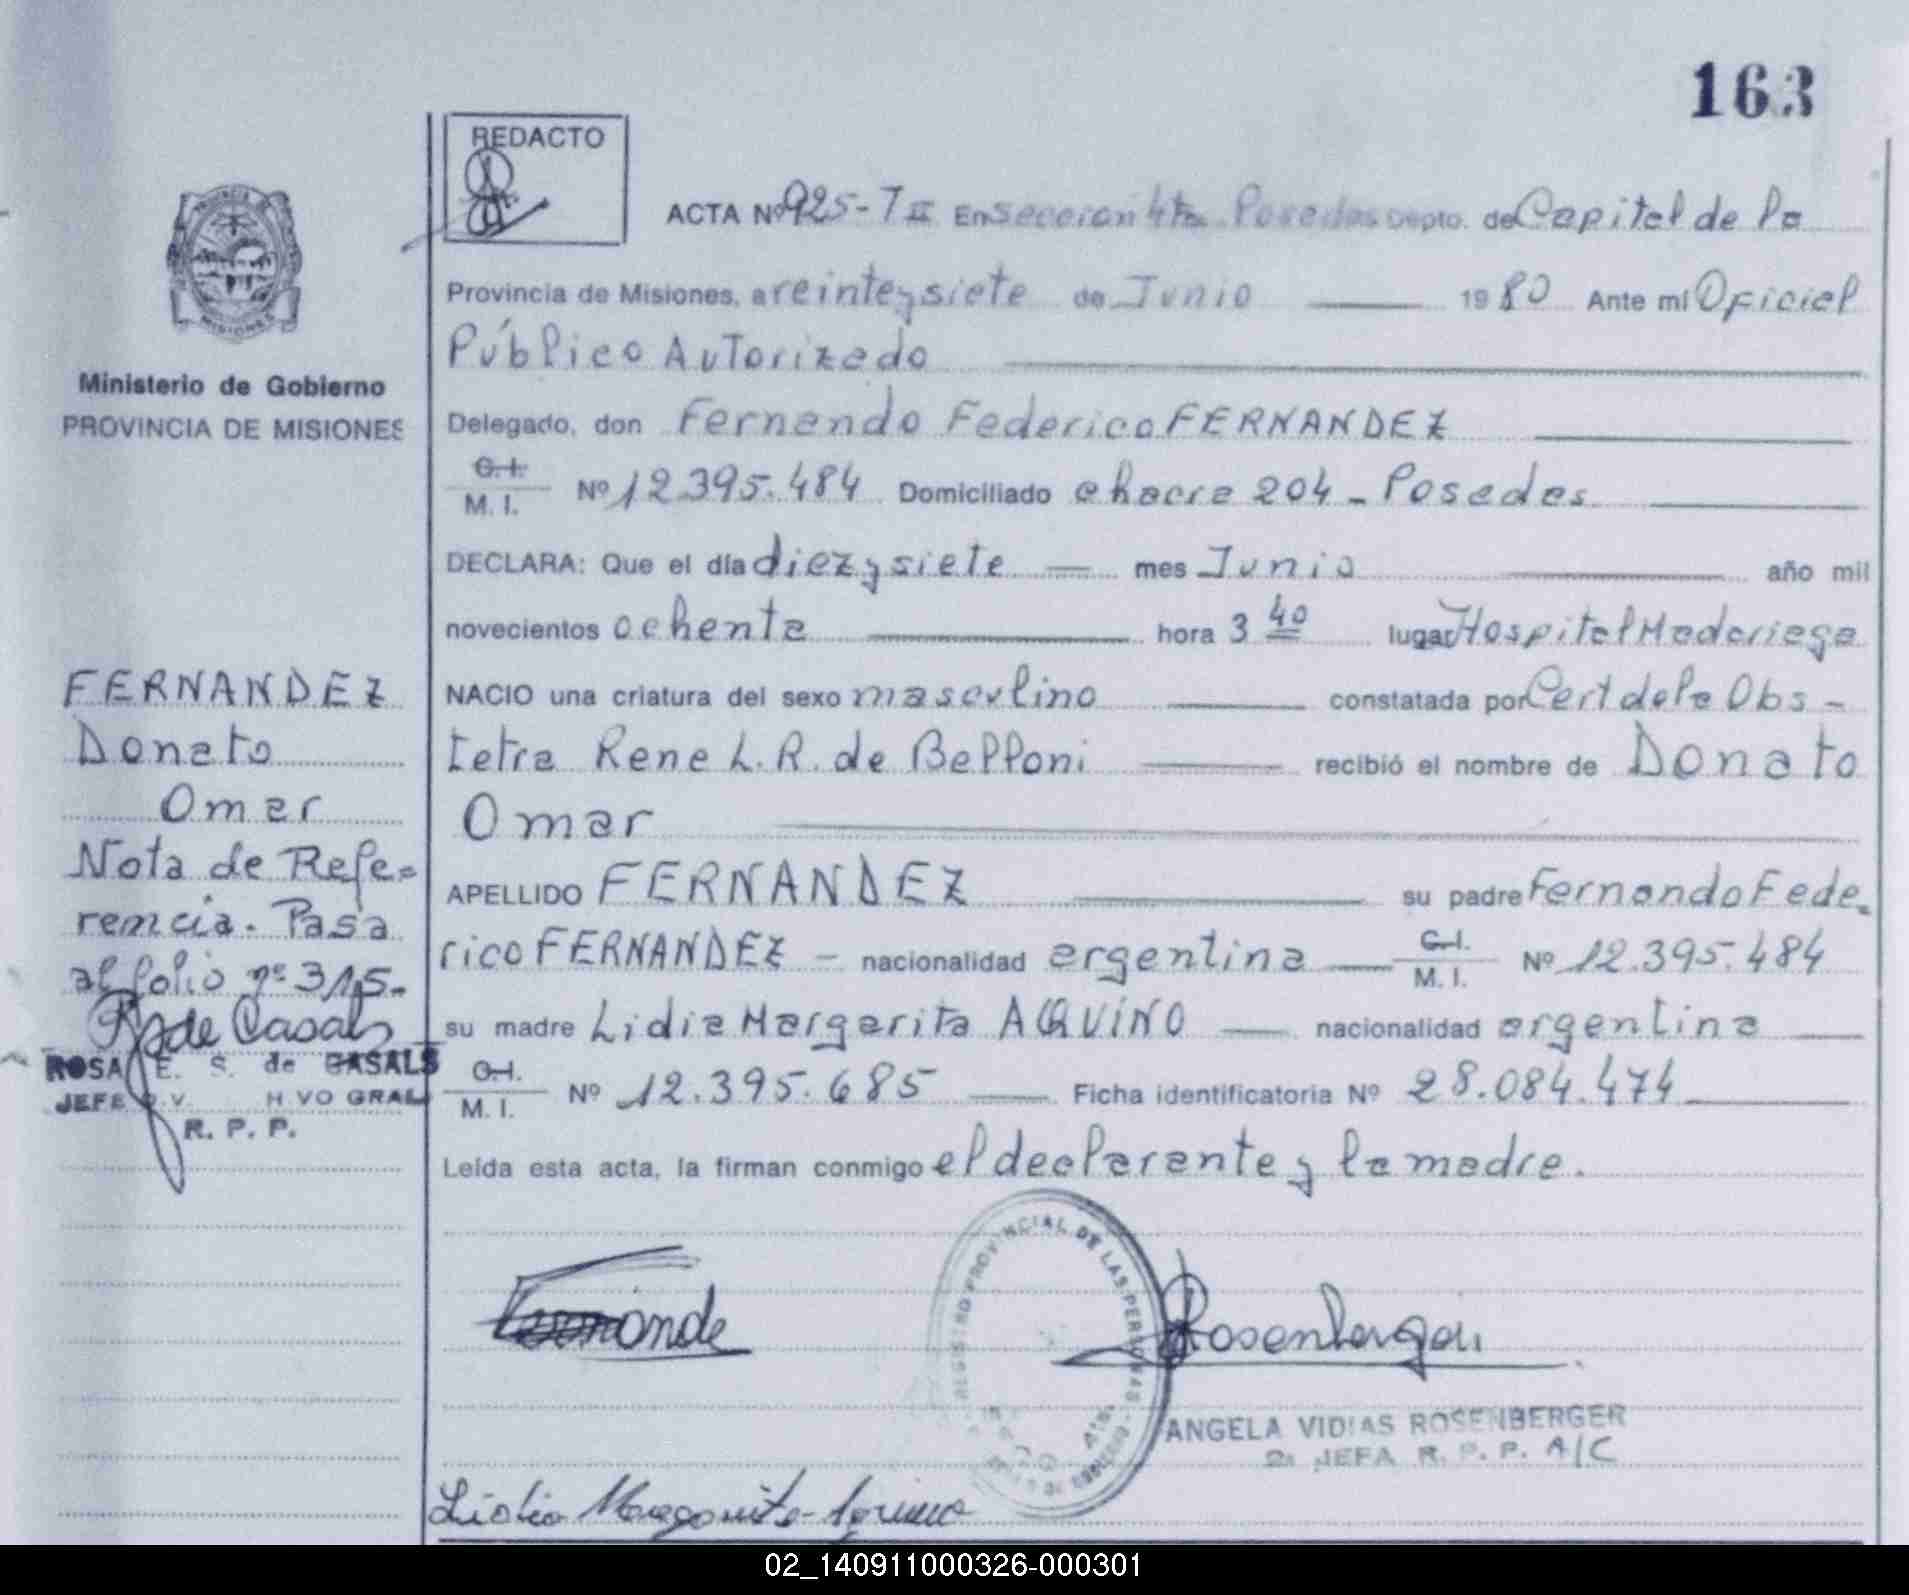 163
REDACTO
ACTA Nº 925-T II En Seccion 4ta Posadas Depto. de Capital de la
Provincia de Misiones, a veinteysiete de Junio 1980 Ante mí Oficial
Público Autorizado
Delegado, don Fernando Federico FERNANDEZ
C.I. M. I. Nº 12.395.484 Domiciliado chacra 204 - Posadas
DECLARA: Que el día diezysiete mes Junio año mil
novecientos ochenta hora 3 40 lugar Hospital Madariaga
NACIO una criatura del sexo masculino constatada por Cert de la Obs-
tetra Rene L. R. de Belloni recibió el nombre de Donato
Omar
APELLIDO FERNANDEZ su padre Fernando Fede-
rico FERNANDEZ - nacionalidad argentina C.I. M. I. Nº 12.395.484
su madre Lidia Margarita AQUINO nacionalidad argentina
C.I. M. I. Nº 12.395.685 Ficha identificatoria Nº 28.084.474
Leída esta acta, la firman conmigo el declarante y la madre.
Ministerio de Gobierno
PROVINCIA DE MISIONES
FERNANDEZ
Donato
Omar
Nota de Refe=
rencia. Pasa
al folio nº 315.
R de Casals
ROSA E. S. de CASALS
JEFE DIV. H VO GRAL
R. P. P.
REGISTRO PROVINCIAL DE LAS PERSONAS
Rosenberger
ANGELA VIDIAS ROSENBERGER
JEFA R. P. P. A/C
Lidia Margarita Aquino
02_140911000326-000301